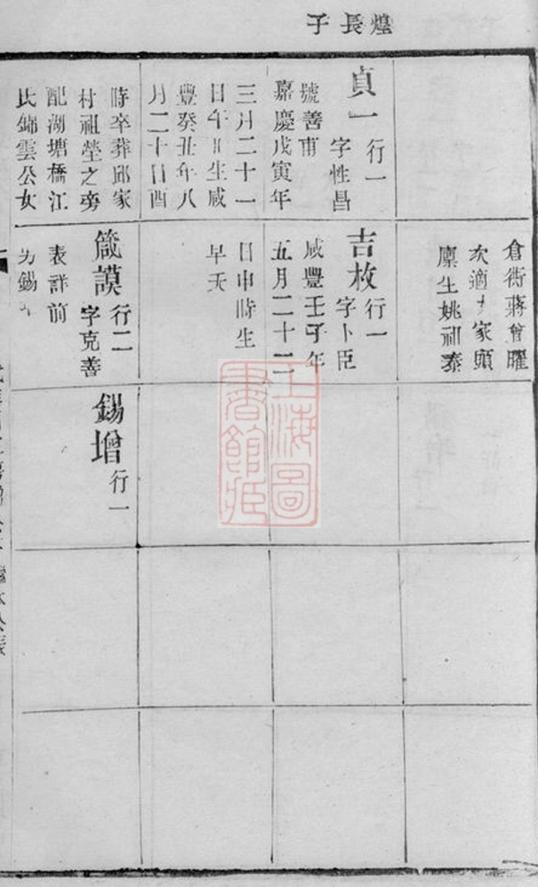 煌長子
貞一 行一
字性昌
號善甫
嘉慶戊寅年
三月二十一
日午時生咸
豐癸丑年八
月二十日酉
時卒葬邱家
村祖塋之旁
配湖塘橋江
氏錦雲公女
倉街蔣曾曜
次適 家頭
廪生姚祖泰
吉枚 行一
字卜臣
咸豐壬子年
五月二十二
日申時生
早夭
箴謨 行二
字克善
表詳前
錫
錫增 行一
上海圖書館藏